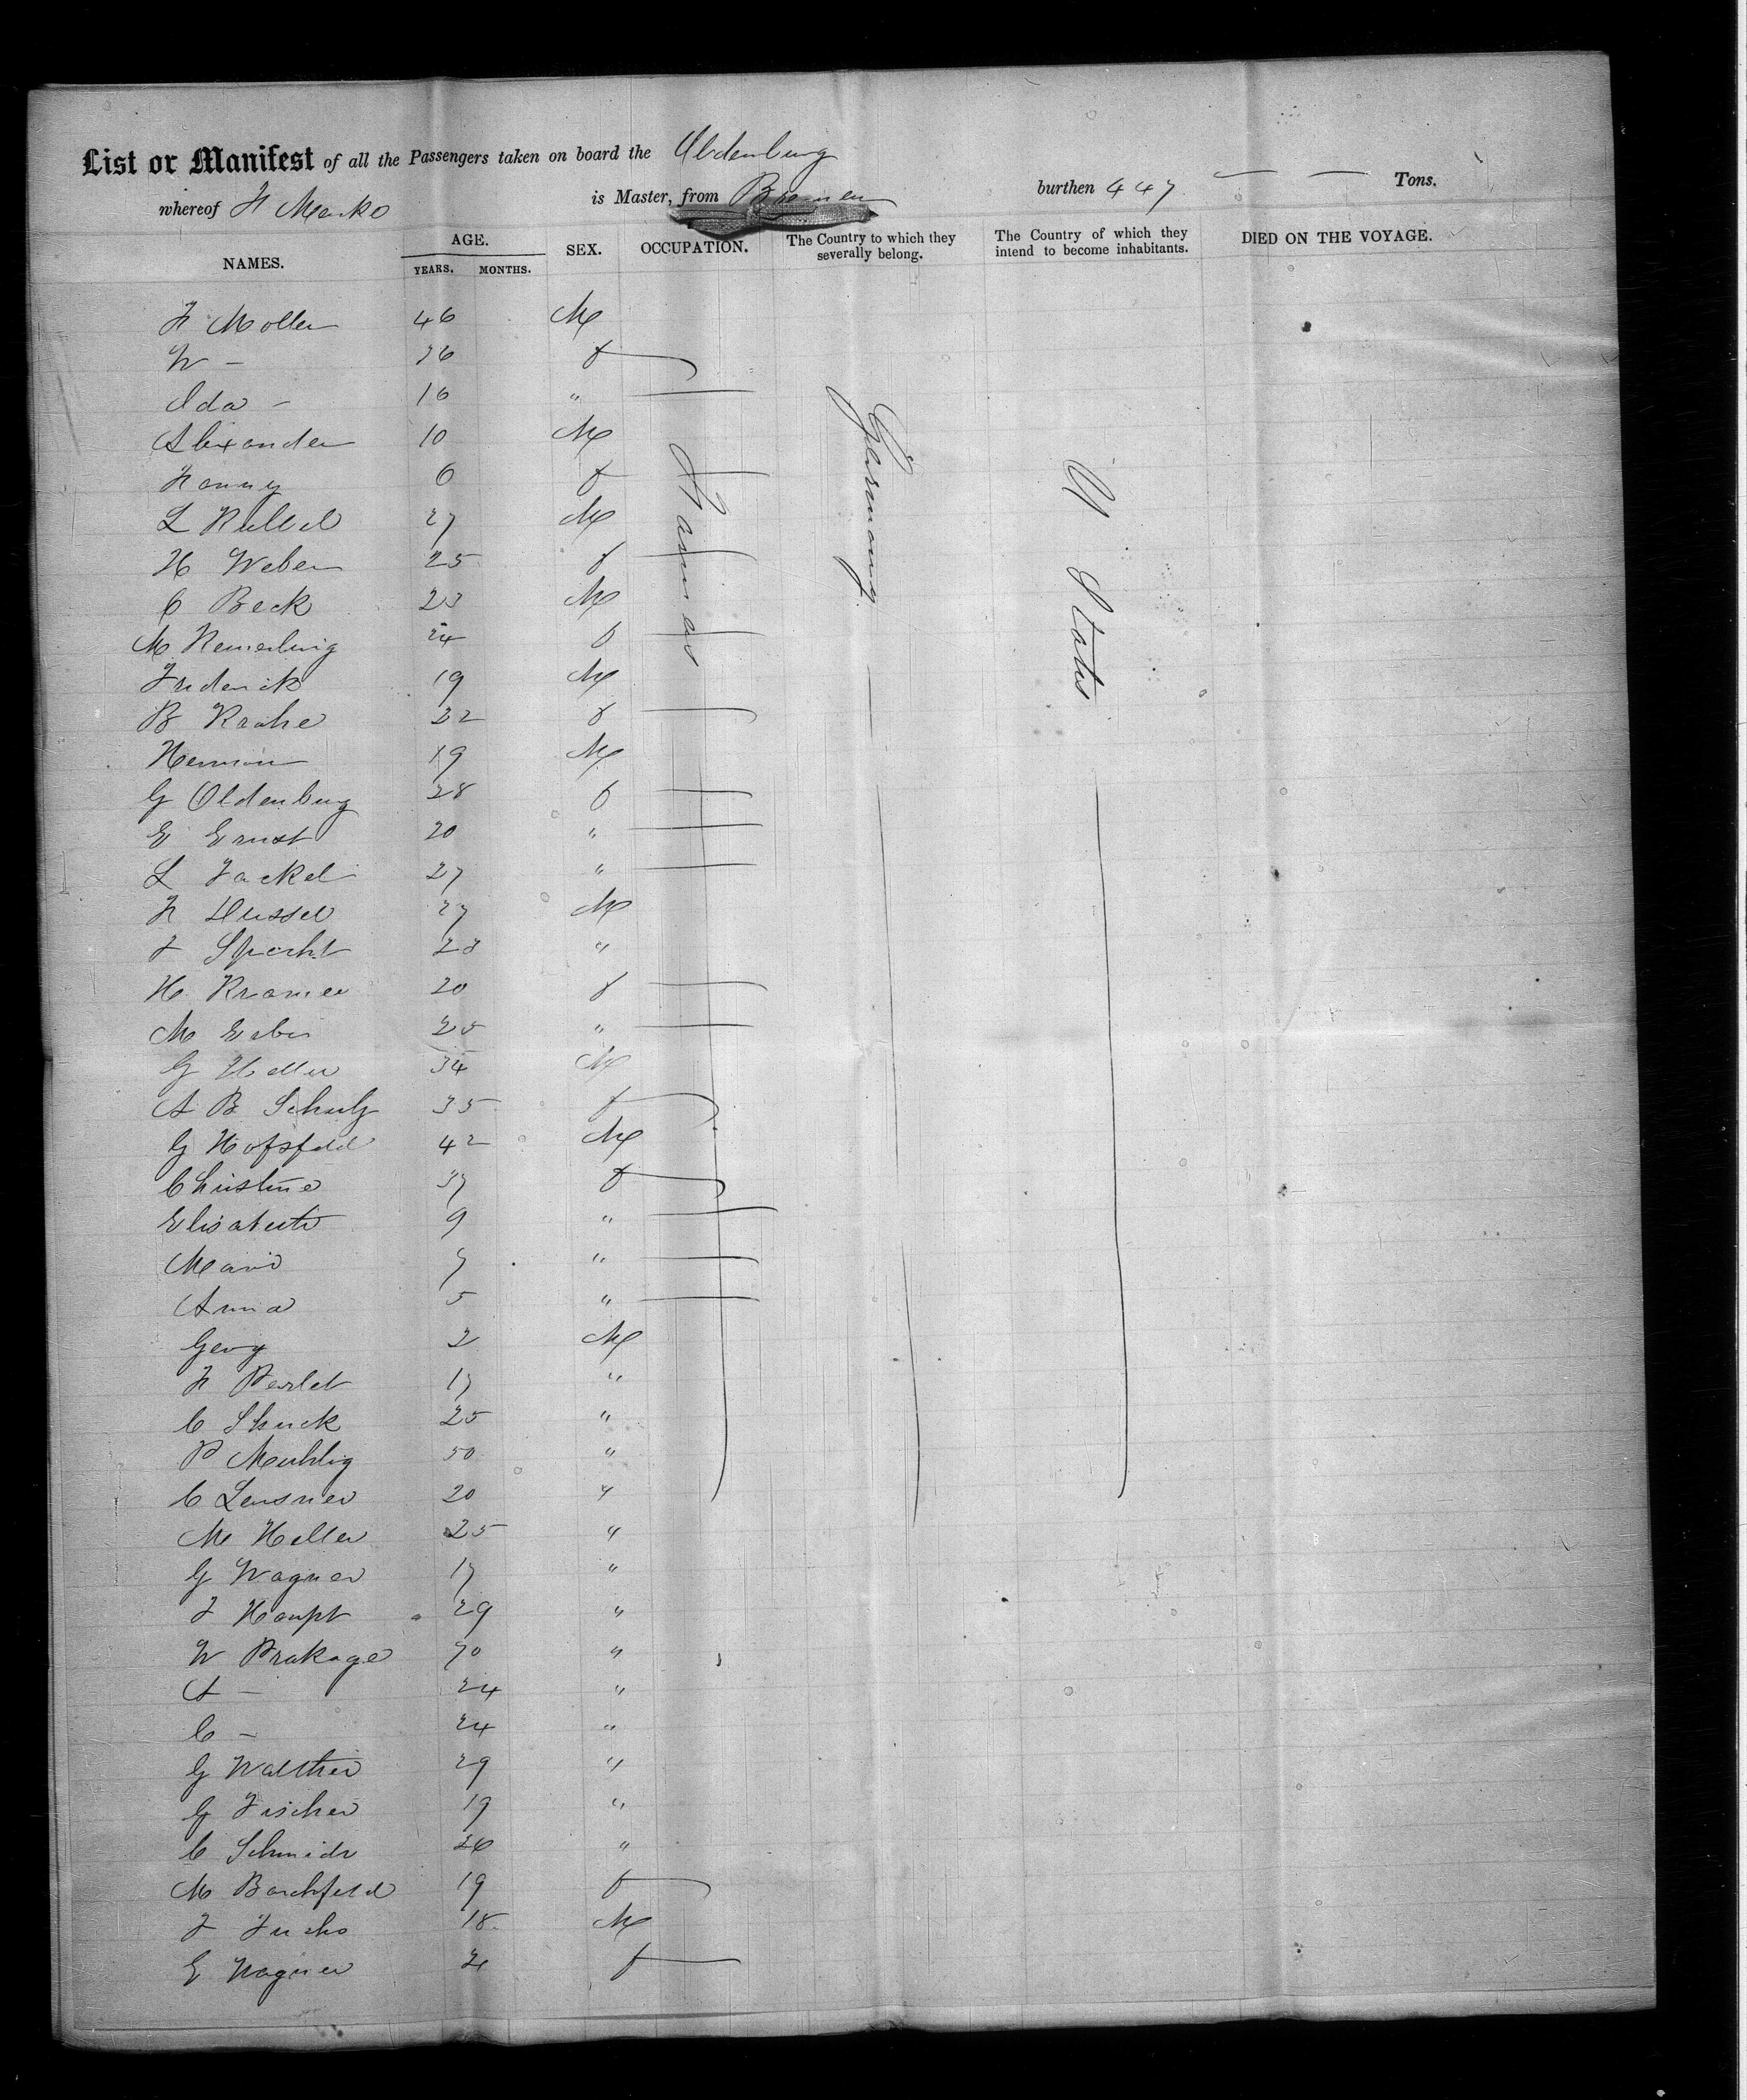 List or Manifest of all the Passengers taken on board the Oldenburg
whereof H Manko is Master, from Bremen burthen 447 — — Tons.
NAMES. AGE. YEARS. MONTHS. SEX. OCCUPATION. The Country to which they severally belong. The Country of which they intend to become inhabitants. DIED ON THE VOYAGE.
F Moller 46 M
W — 36 f
Ida — 16 "
Alexander 10 M
Fanny 6 f
L Kullel 27 M
H Weber 25 f
C Beck 23 M
M Kemerling 24 f
Frederick 19 M
B Krahe 22 f
Herman 19 M
G Oldenburg 28 f
E Ernst 20 "
L Jackel 27 "
F Dussel 27 M
J Specht 23 "
H Kramer 20 f
M Erber 25 "
G Heller 34 M
A B Schulz 35 f
G Hofsfeld 42 M
Christine 37 f
Elisabeth 9 "
Marie 7 "
Anna 5 "
Georg 2 M
F Perlet 17 "
C Shuck 25 "
P Muhlig 50 "
C Leusner 20 "
M Heller 25 "
G Wagner 17 "
J Haupt 29 "
W Prakage 70 "
A — 24 "
C — 24 "
G Walther 29 "
G Fischer 19 "
C Schmidt 26 "
M Barchfeld 19 f
J Fuchs 18 M
E Wagner 21 f
Farmers
Germany
U States